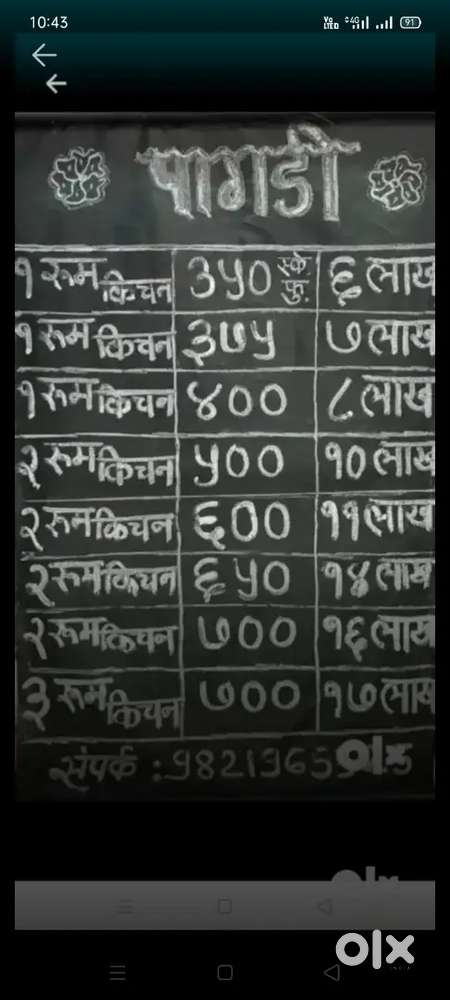 10:43
Vo LTED 4G 91
पागडी
१ रूम किचन ३५० स्के. फु. ६ लाख
१ रूम किचन ३७५ ७ लाख
१ रूम किचन ४०० ८ लाख
२ रूम किचन ५०० १० लाख
२ रूम किचन ६०० ११ लाख
२ रूम किचन ६५० १४ लाख
२ रूम किचन ७०० १६ लाख
३ रूम किचन ७०० १७ लाख
संपर्क :
olx
olx
olx
INDIA